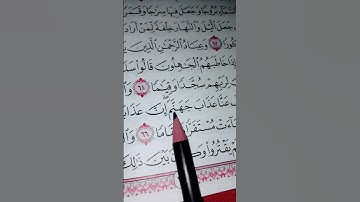 بُرُوجًا وَجَعَلَ فِيهَا سِرَاجًا وَقَمَرًا
جَعَلَ ٱلَّيْلَ وَٱلنَّهَارَ خِلْفَةً لِّمَنْ أَرَادَ
٦٢ وَعِبَادُ ٱلرَّحْمَٰنِ ٱلَّذِينَ
خَاطَبَهُمُ ٱلْجَٰهِلُونَ قَالُوا۟
لِرَبِّهِمْ سُجَّدًا وَقِيَٰمًا ٦٤
عَنَّا عَذَابَ جَهَنَّمَ إِنَّ
سَآءَتْ مُسْتَقَرًّا ٦٦
يَقْتُرُوا۟ بَيْنَ ذَٰلِكَ